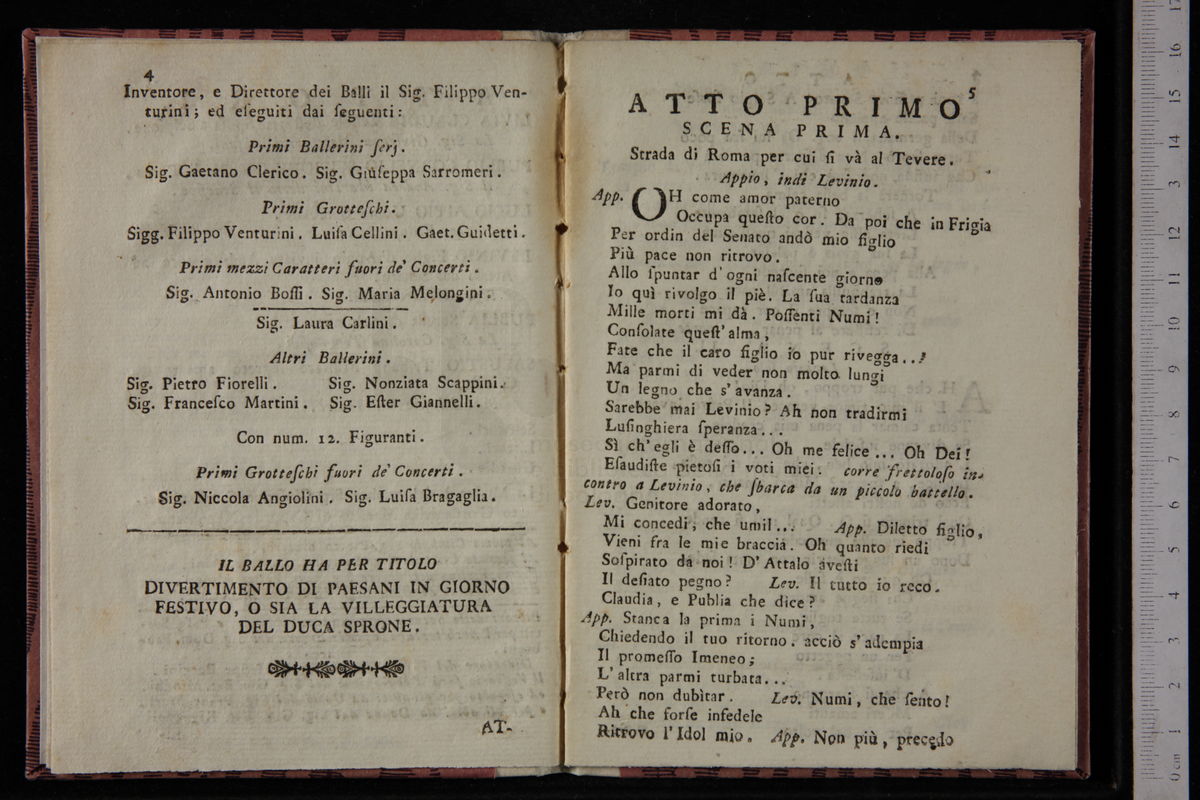 4
Inventore, e Direttore dei Balli il Sig. Filippo Ven-
turini; ed eſeguiti dai ſeguenti:
Primi Ballerini ſerj.
Sig. Gaetano Clerico. Sig. Giuſeppa Sarromeri.
Primi Grotteſchi.
Sigg. Filippo Venturini. Luiſa Cellini. Gaet. Guidetti.
Primi mezzi Caratteri fuori de' Concerti.
Sig. Antonio Boſſi. Sig. Maria Melongini.
Sig. Laura Carlini.
Altri Ballerini.
Sig. Pietro Fiorelli. Sig. Nonziata Scappini.
Sig. Franceſco Martini. Sig. Eſter Giannelli.
Con num. 12. Figuranti.
Primi Grotteſchi fuori de' Concerti.
Sig. Niccola Angiolini. Sig. Luiſa Bragaglia.
IL BALLO HA PER TITOLO
DIVERTIMENTO DI PAESANI IN GIORNO
FESTIVO, O SIA LA VILLEGGIATURA
DEL DUCA SPRONE.
AT-
5
ATTO PRIMO
SCENA PRIMA.
Strada di Roma per cui ſi và al Tevere.
Appio, indi Levinio.
App. OH come amor paterno
Occupa queſto cor. Da poi che in Frigia
Per ordin del Senato andò mio figlio
Più pace non ritrovo.
Allo ſpuntar d'ogni naſcente giorno
Io quì rivolgo il piè. La ſua tardanza
Mille morti mi dà. Poſſenti Numi!
Conſolate queſt'alma,
Fate che il caro figlio io pur rivegga..!
Ma parmi di veder non molto lungi
Un legno che s'avanza.
Sarebbe mai Levinio? Ah non tradirmi
Luſinghiera ſperanza...
Sì ch'egli è deſſo... Oh me felice... Oh Dei!
Eſaudiſte pietoſi i voti miei. corre frettoloſo in-
contro a Levinio, che ſbarca da un piccolo battello.
Lev. Genitore adorato,
Mi concedi, che umil... App. Diletto figlio,
Vieni fra le mie braccia. Oh quanto riedi
Soſpirato da noi! D'Attalo aveſti
Il deſiato pegno? Lev. Il tutto io reco.
Claudia, e Publia che dice?
App. Stanca la prima i Numi,
Chiedendo il tuo ritorno. acciò s'adempia
Il promeſſo Imeneo;
L'altra parmi turbata...
Però non dubìtar. Lev. Numi, che ſento!
Ah che forſe infedele
Ritrovo l'Idol mio. App. Non più, precedo
0 cm 1 2 3 4 5 6 7 8 9 10 11 12 13 14 15 16 17